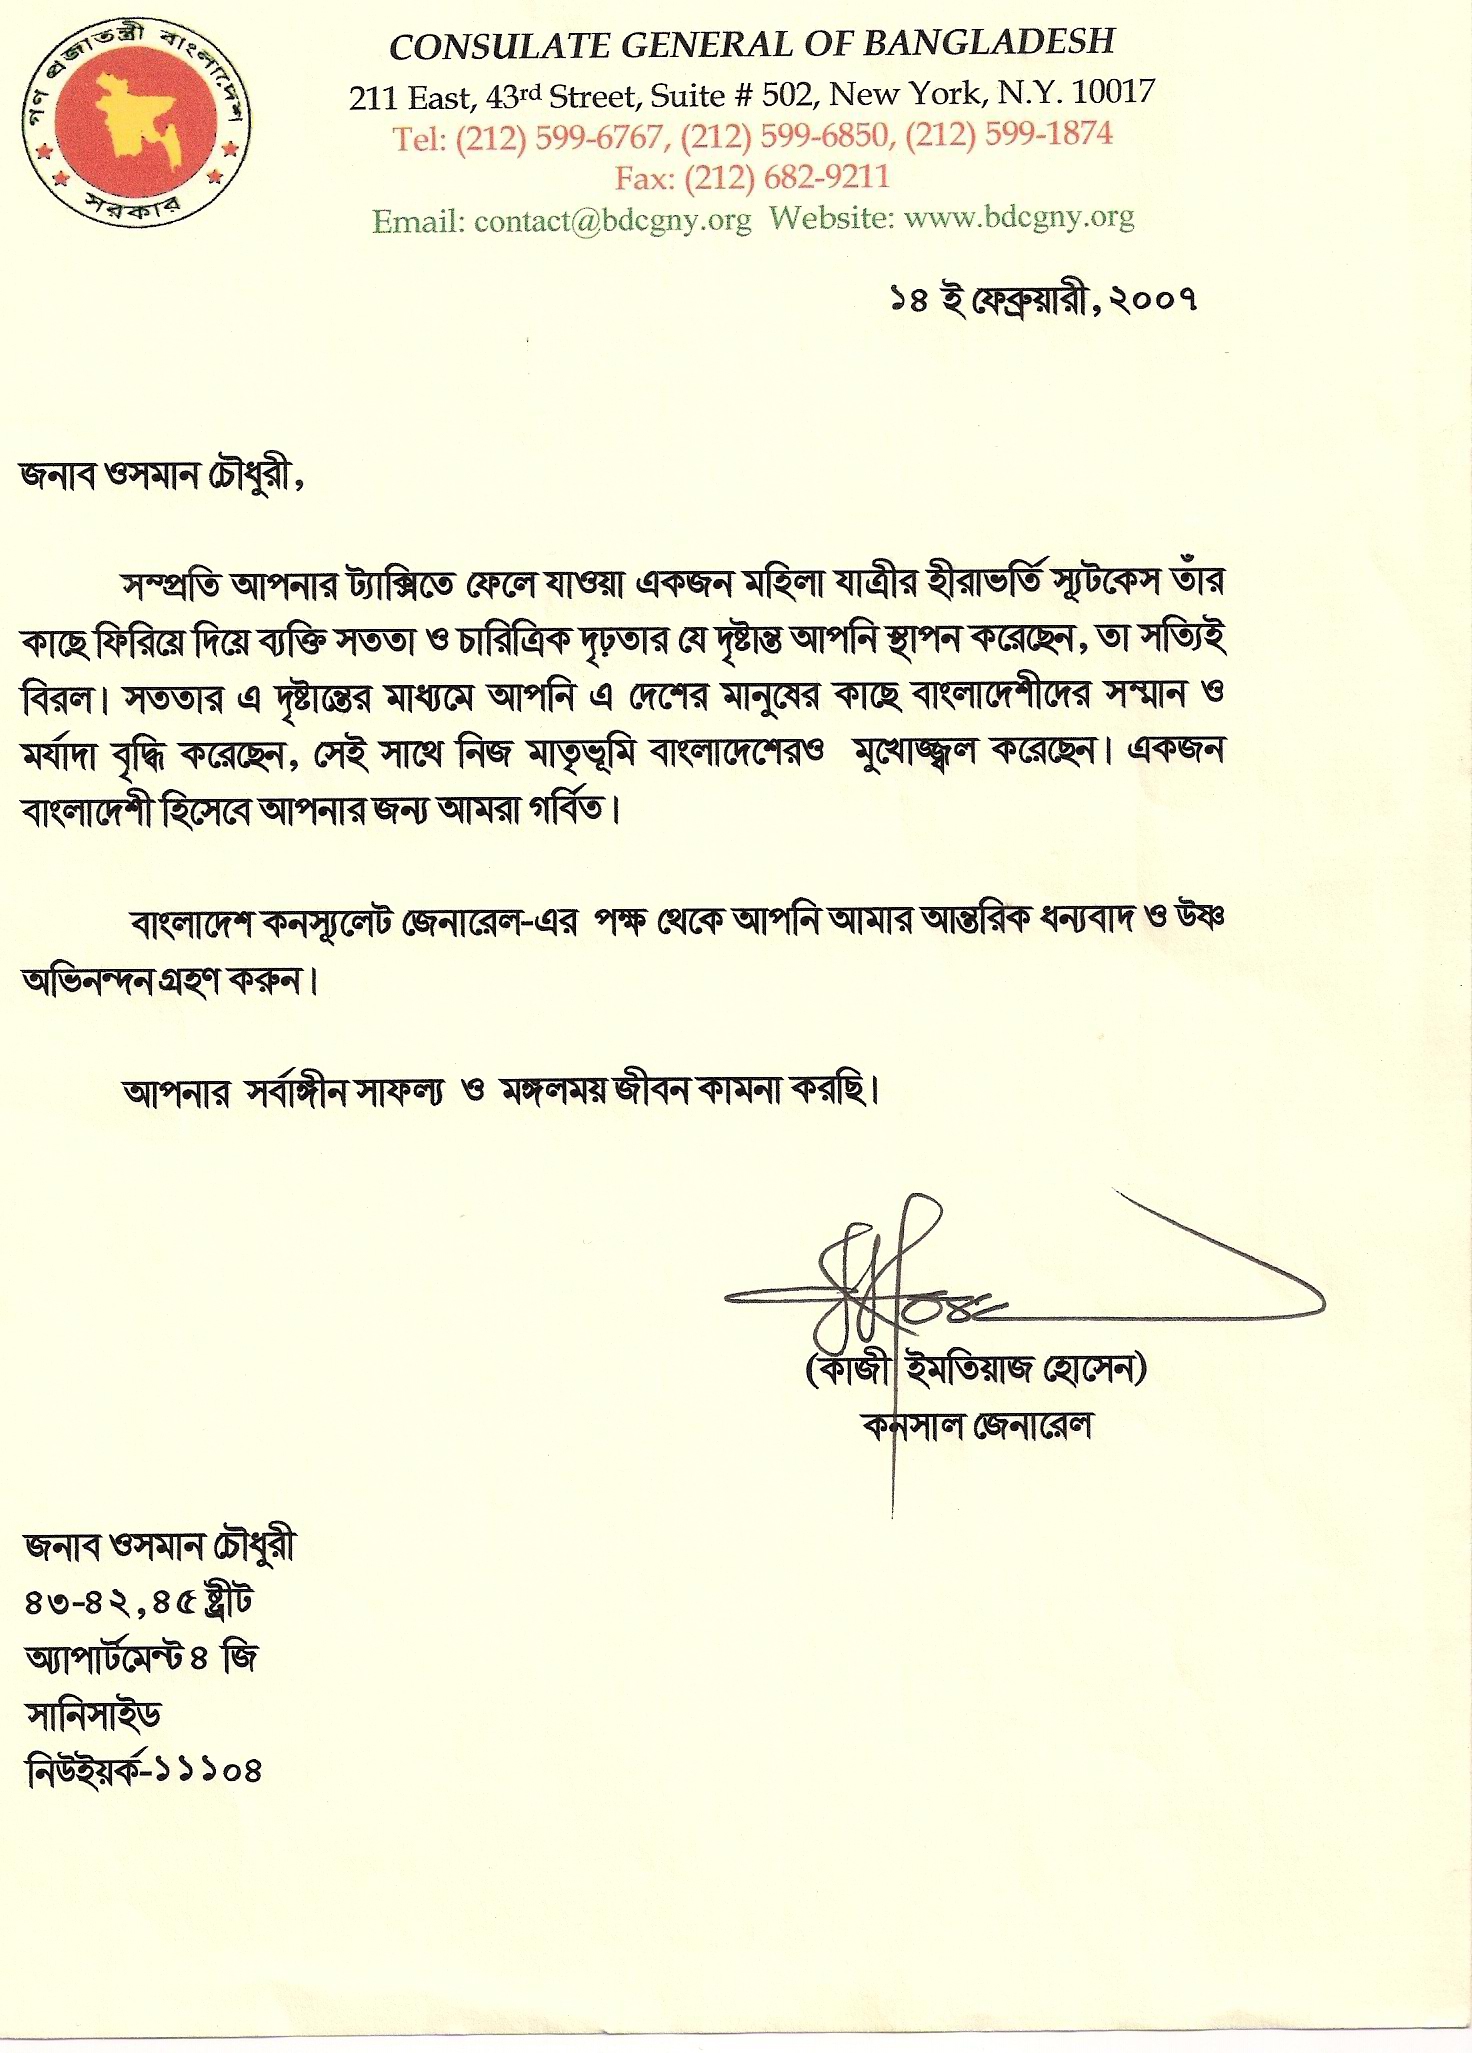 গণ প্রজাতন্ত্রী বাংলাদেশ
সরকার
CONSULATE GENERAL OF BANGLADESH
211 East, 43rd Street, Suite # 502, New York, N.Y. 10017
Tel: (212) 599-6767, (212) 599-6850, (212) 599-1874
Fax: (212) 682-9211
Email: contact@bdcgny.org Website: www.bdcgny.org
১৪ ই ফেব্রুয়ারী, ২০০৭
জনাব ওসমান চৌধুরী,
সম্প্রতি আপনার ট্যাক্সিতে ফেলে যাওয়া একজন মহিলা যাত্রীর হীরাভর্তি স্যূটকেস তাঁর
কাছে ফিরিয়ে দিয়ে ব্যক্তি সততা ও চারিত্রিক দৃঢ়তার যে দৃষ্টান্ত আপনি স্থাপন করেছেন, তা সত্যিই
বিরল। সততার এ দৃষ্টান্তের মাধ্যমে আপনি এ দেশের মানুষের কাছে বাংলাদেশীদের সম্মান ও
মর্যাদা বৃদ্ধি করেছেন, সেই সাথে নিজ মাতৃভূমি বাংলাদেশেরও মুখোজ্জ্বল করেছেন। একজন
বাংলাদেশী হিসেবে আপনার জন্য আমরা গর্বিত।
বাংলাদেশ কনস্যূলেট জেনারেল-এর পক্ষ থেকে আপনি আমার আন্তরিক ধন্যবাদ ও উষ্ণ
অভিনন্দন গ্রহণ করুন।
আপনার সর্বাঙ্গীন সাফল্য ও মঙ্গলময় জীবন কামনা করছি।
(কাজী ইমতিয়াজ হোসেন)
কনসাল জেনারেল
জনাব ওসমান চৌধুরী
৪৩-৪২, ৪৫ ষ্ট্রীট
অ্যাপার্টমেন্ট ৪ জি
সানিসাইড
নিউইয়র্ক-১১১০৪